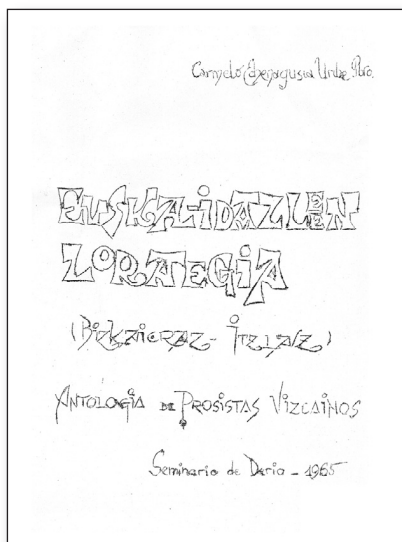 Carmelo Echenagusia Uribe Pbro.
EUSKAL-IDAZLEEN
LORATEGIA
(BIZKAIERAZ- ITZLAUZ)
ANTOLOGIA DE PROSISTAS VIZCAINOS
Seminario de Derio - 1965